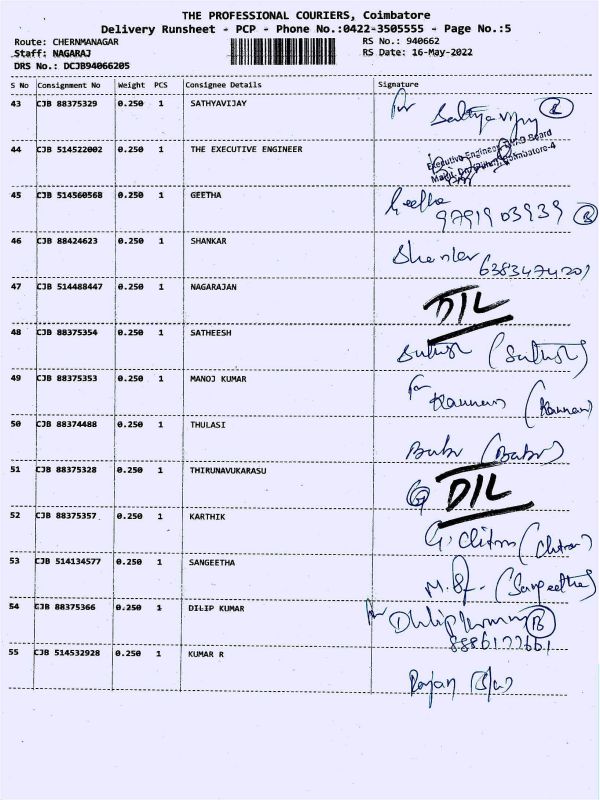 THE PROFESSIONAL COURIERS, Coimbatore
Delivery Runsheet - PCP - Phone No.:0422-3505555 - Page No.:5
Route: CHERNMANAGAR RS No.: 940662
Staff: NAGARAJ RS Date: 16-May-2022
DRS No.: DCJB94066205
S No Consignment No Weight PCS Consignee Details Signature
43 CJB 88375329 0.250 1 SATHYAVIJAY for Sathyavijay
44 CJB 514522002 0.250 1 THE EXECUTIVE ENGINEER
Executive Engineer Board
Coimbatore-4
45 CJB 514560568 0.250 1 GEETHA Geetha
9791903939 B
46 CJB 88424623 0.250 1 SHANKAR Shanker
6383474201
47 CJB 514488447 0.250 1 NAGARAJAN D/L
48 CJB 88375354 0.250 1 SATHEESH (Satheesh)
49 CJB 88375353 0.250 1 MANOJ KUMAR for Kannan (Kannan)
50 CJB 88374488 0.250 1 THULASI Babu (Babu)
51 CJB 88375328 0.250 1 THIRUNAVUKARASU D/L
52 CJB 88375357 0.250 1 KARTHIK G. Chitra (Chitra)
53 CJB 514134577 0.250 1 SANGEETHA (Sangeetha)
54 CJB 88375366 0.250 1 DILIP KUMAR for Dhilipkumar B
8886122661
55 CJB 514532928 0.250 1 KUMAR R Rajan